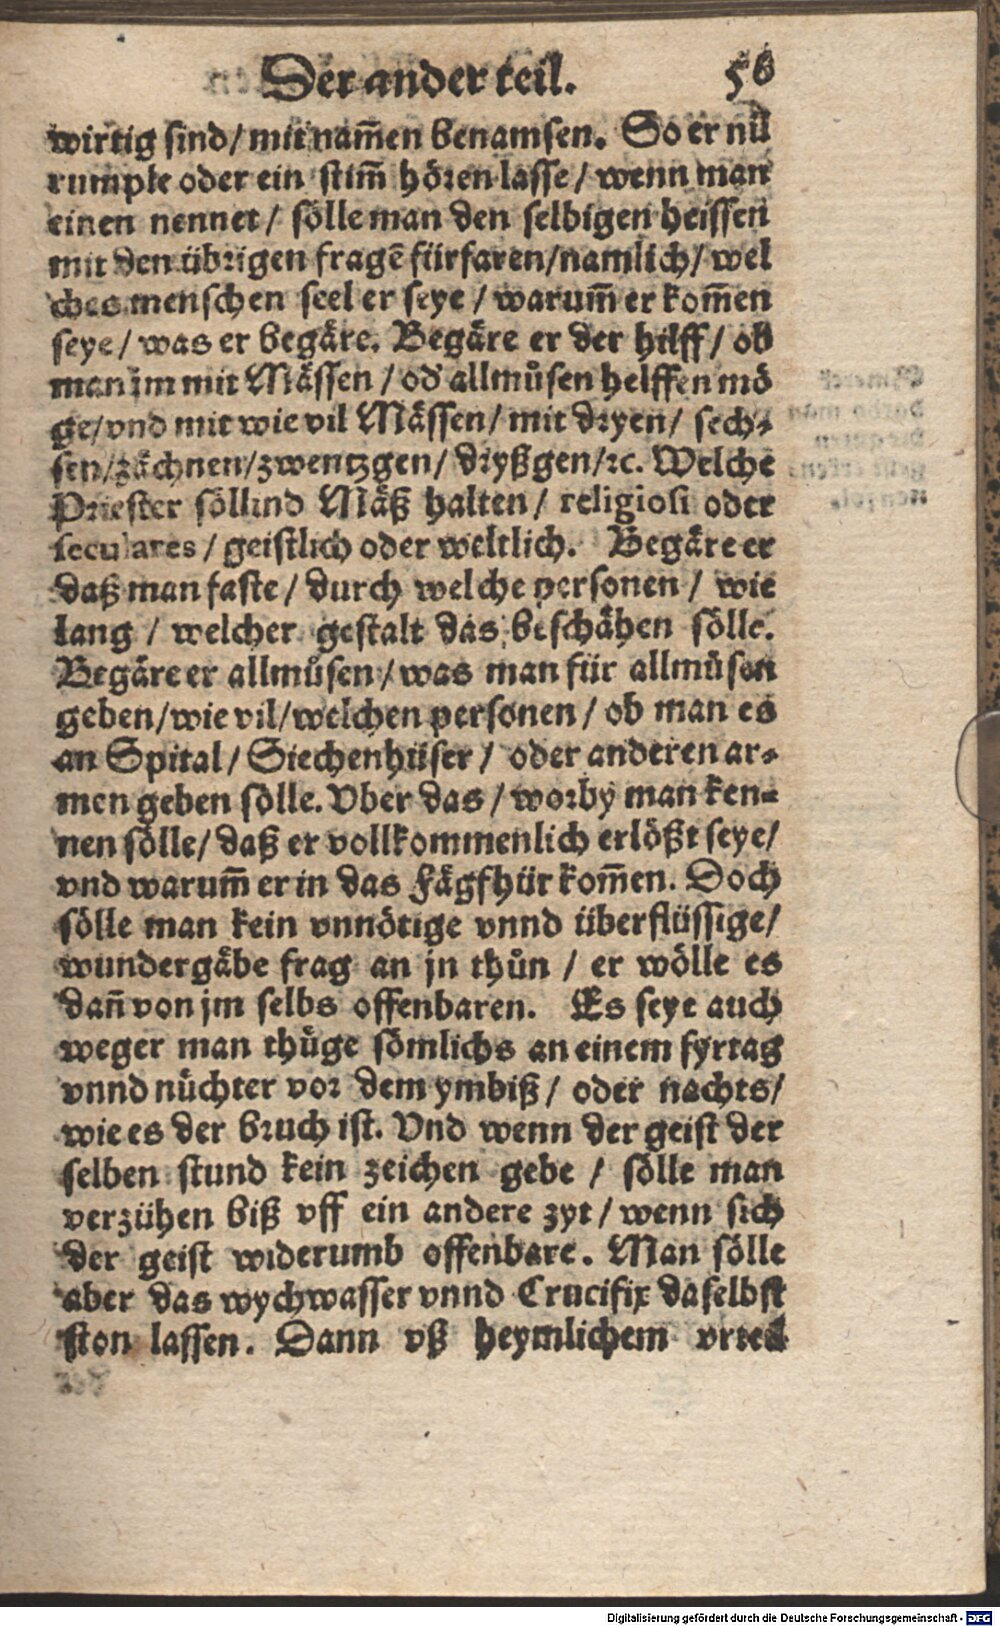 Der ander teil. 56
wirtig sind/ mit nam̃en benamsen. So er nů
rumple oder ein stim̃ hören lasse/ wenn man
einen nennet/ sölle man den selbigen heissen
mit den übrigen fragẽ fürfaren/namlich/ wel
ches menschen seel er seye/ warum̃ er kom̃en
seye/ was er begäre. Begäre er der hilff/ ob
man im mit Mässen/ od̕ allmůsen helffen mö
ge/vnd mit wie vil Mässen/ mit dryen/ sech⸗
sen/zächnen/zwentzgen/ dryßgen/ꝛc. Welche
Priester söllind Mäß halten/ religiosi oder
seculares/ geistlich oder weltlich. Begäre er
daß man faste/ durch welche personen/ wie
lang/ welcher gestalt das beschähen sölle.
Begäre er allmůsen/ was man für allmůsen
geben/wie vil/welchen personen/ ob man es
an Spital/ Siechenhüser/ oder anderen ar⸗
men geben sölle. Vber das/ worby man ken⸗
nen sölle/ daß er vollkommenlich erlößt seye/
vnd warum̃ er in das Fägfhür kom̃en. Doch
sölle man kein vnnötige vnnd überflüssige/
wundergäbe frag an jn thůn/ er wölle es
dañ von jm selbs offenbaren. Es seye auch
weger man thüge sömlichs an einem fyrtag
vnnd nüchter vor dem ymbiß/ oder nachts/
wie es der bruch ist. Vnd wenn der geist der
selben stund kein zeichen gebe/ sölle man
verzühen biß vff ein andere zyt/ wenn sich
der geist widerumb offenbare. Man sölle
aber das wychwasser vnnd Crucifix daselbst
ston lassen. Dann vß heymlichem vrteil
Digitalisierung gefördert durch die Deutsche Forschungsgemeinschaft - DFG